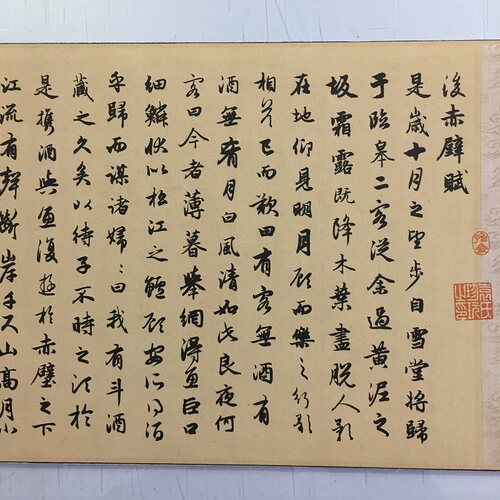 後赤壁賦
是歲十月之望步自雪堂將歸
于臨皋二客從余過黃泥之
坂霜露既降木葉盡脫人影
在地仰見明月顧而樂之行歌
相答已而歎曰有客無酒有
酒無肴月白風清如此良夜何
客曰今者薄暮舉網得魚巨口
細鱗狀似松江之鱸顧安所得酒
乎歸而謀諸婦〻曰我有斗酒
藏之久矣以待子不時之須於
是攜酒與魚復遊於赤壁之下
江流有聲斷岸千尺山高月小